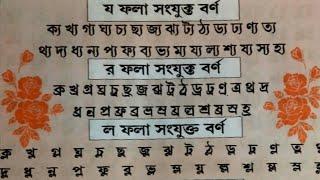 য ফলা সংযুক্ত বর্ণ
ক্য খ্য গ্য ঘ্য চ্য ছ্য জ্য ঝ্য ট্য ঠ্য ড্য ঢ্য ণ্য ত্য
থ্য দ্য ধ্য ন্য প্য ফ্য ব্য ভ্য ম্য য্য ল্য শ্য ষ্য স্য হ্য
র ফলা সংযুক্ত বর্ণ
ক্র খ্র গ্র ঘ্র চ্র ছ্র জ্র ঝ্র ট্র ঠ্র ড্র ঢ্র ণ্র ত্র থ্র দ্র
ধ্র ন্র প্র ফ্র ব্র ভ্র ম্র য্র ল্র শ্র ষ্র স্র হ্র
ল ফলা সংযুক্ত বর্ণ
ক্ল খ্ল গ্ল ঘ্ল চ্ল ছ্ল জ্ল ঝ্ল ট্ল ঠ্ল ড্ল ঢ্ল ণ্ল ত্ল